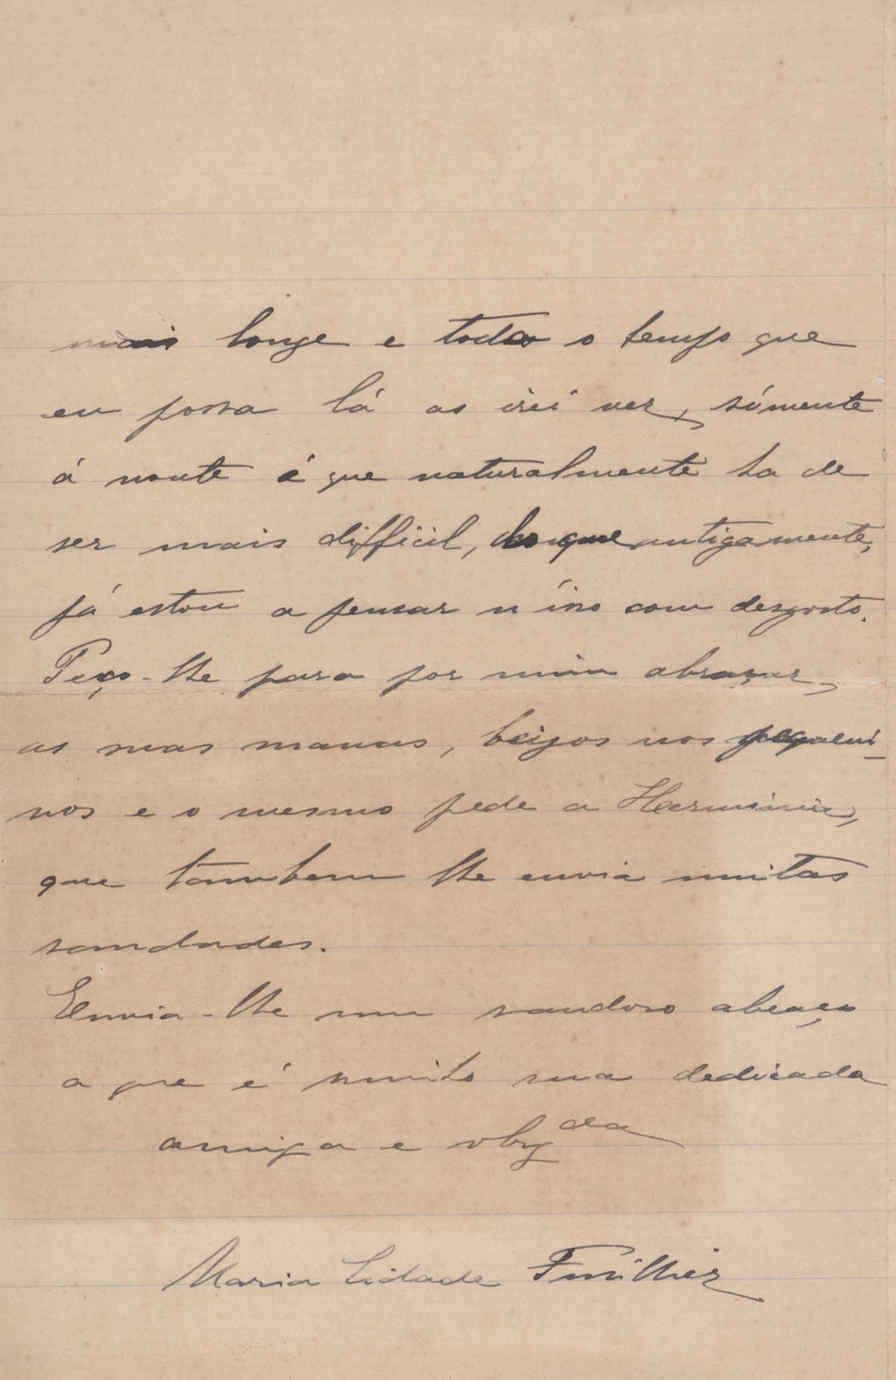 mais longe e todo o tempo que
eu possa lá as irei ver, sómente
á noute é que naturalmente ha de
ser mais difficil, do que antigamente,
já estou a pensar n'isso com desgosto.
Peço-lhe para por mim abraçar,
as suas manas, beijos nos pequeni-
nos e o mesmo pede a Herminia,
que tambem lhe envia muitas
saudades.
Envia-lhe um saudoso abraço
a que é muito sua dedicada
amiga e obg da
Maria Cidade